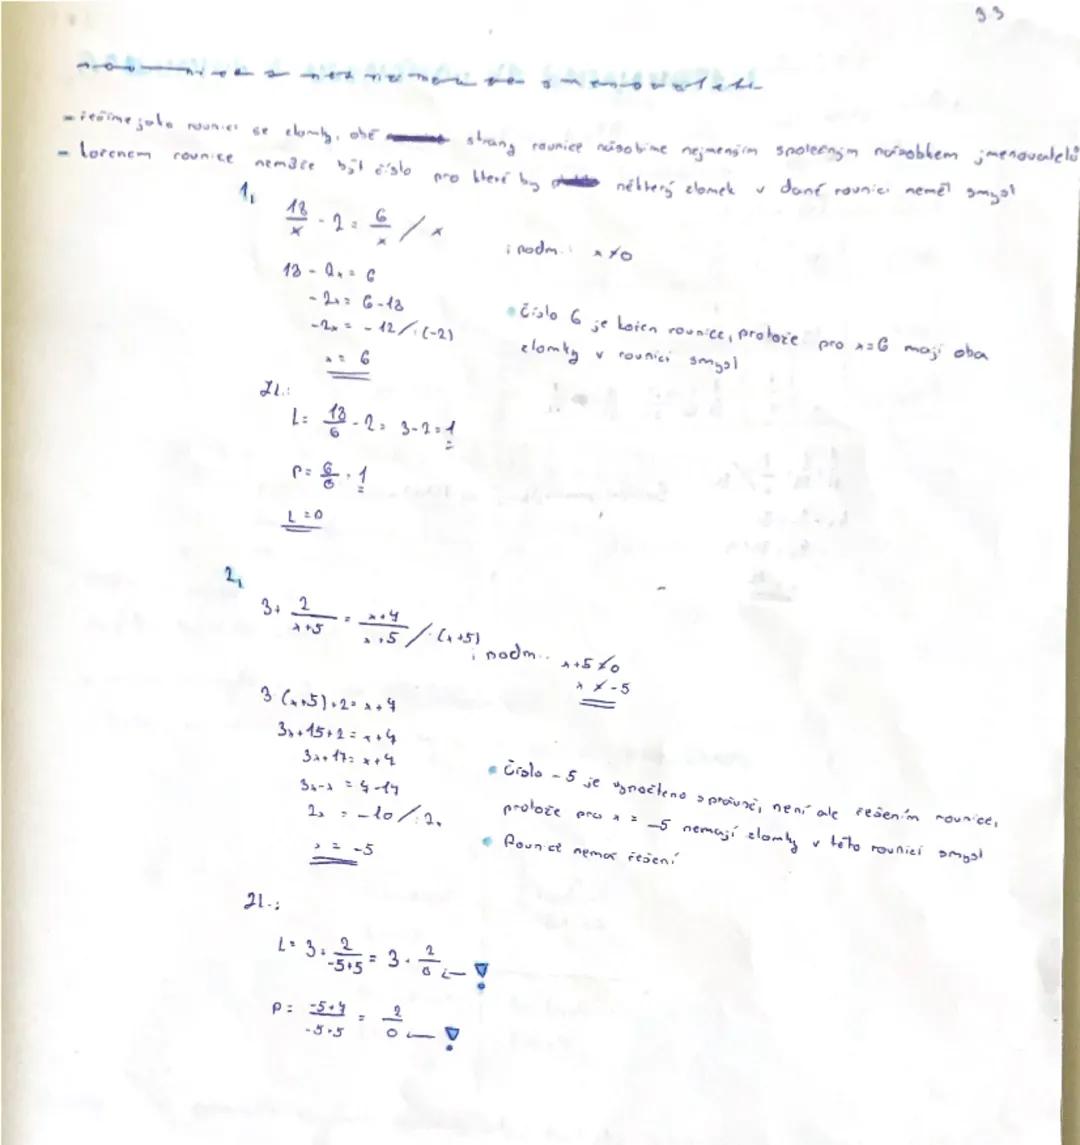 33
- řešíme jako rovnici se zlomky, obě strany rovnice násobíme nejmenším společným násobkem jmenovatelů
- kořenem rovnice nemůže být číslo pro které by některý zlomek v dané rovnici neměl smysl
1,
18/x - 2 = 6/x / x ; podm.: x ≠ 0
18 - 2x = 6
- 2x = 6 - 18
-2x = - 12 /:(-2)
x = 6
• číslo 6 je kořen rovnice, protože pro x=6 mají oba
zlomky v rovnici smysl
Zk.:
L = 18/6 - 2 = 3 - 2 = 1
P = 6/6 = 1
L = P
2,
3 + 2/(x+5) = (x+4)/(x+5) / ·(x+5) ; podm.: x+5 ≠ 0
x ≠ -5
3·(x+5)+2 = x+4
3x+15+2 = x+4
3x+17 = x+4
3x-x = 4-17
2x = -10 /:2
x = -5
• číslo -5 je vypočteno správně, není ale řešením rovnice,
protože pro x = -5 nemají zlomky v této rovnici smysl
• Rovnice nemá řešení
Zk.:
L = 3 + 2/(-5+5) = 3 + 2/0 ← !
P = (-5+4)/(-5+5) = 2/0 ← !